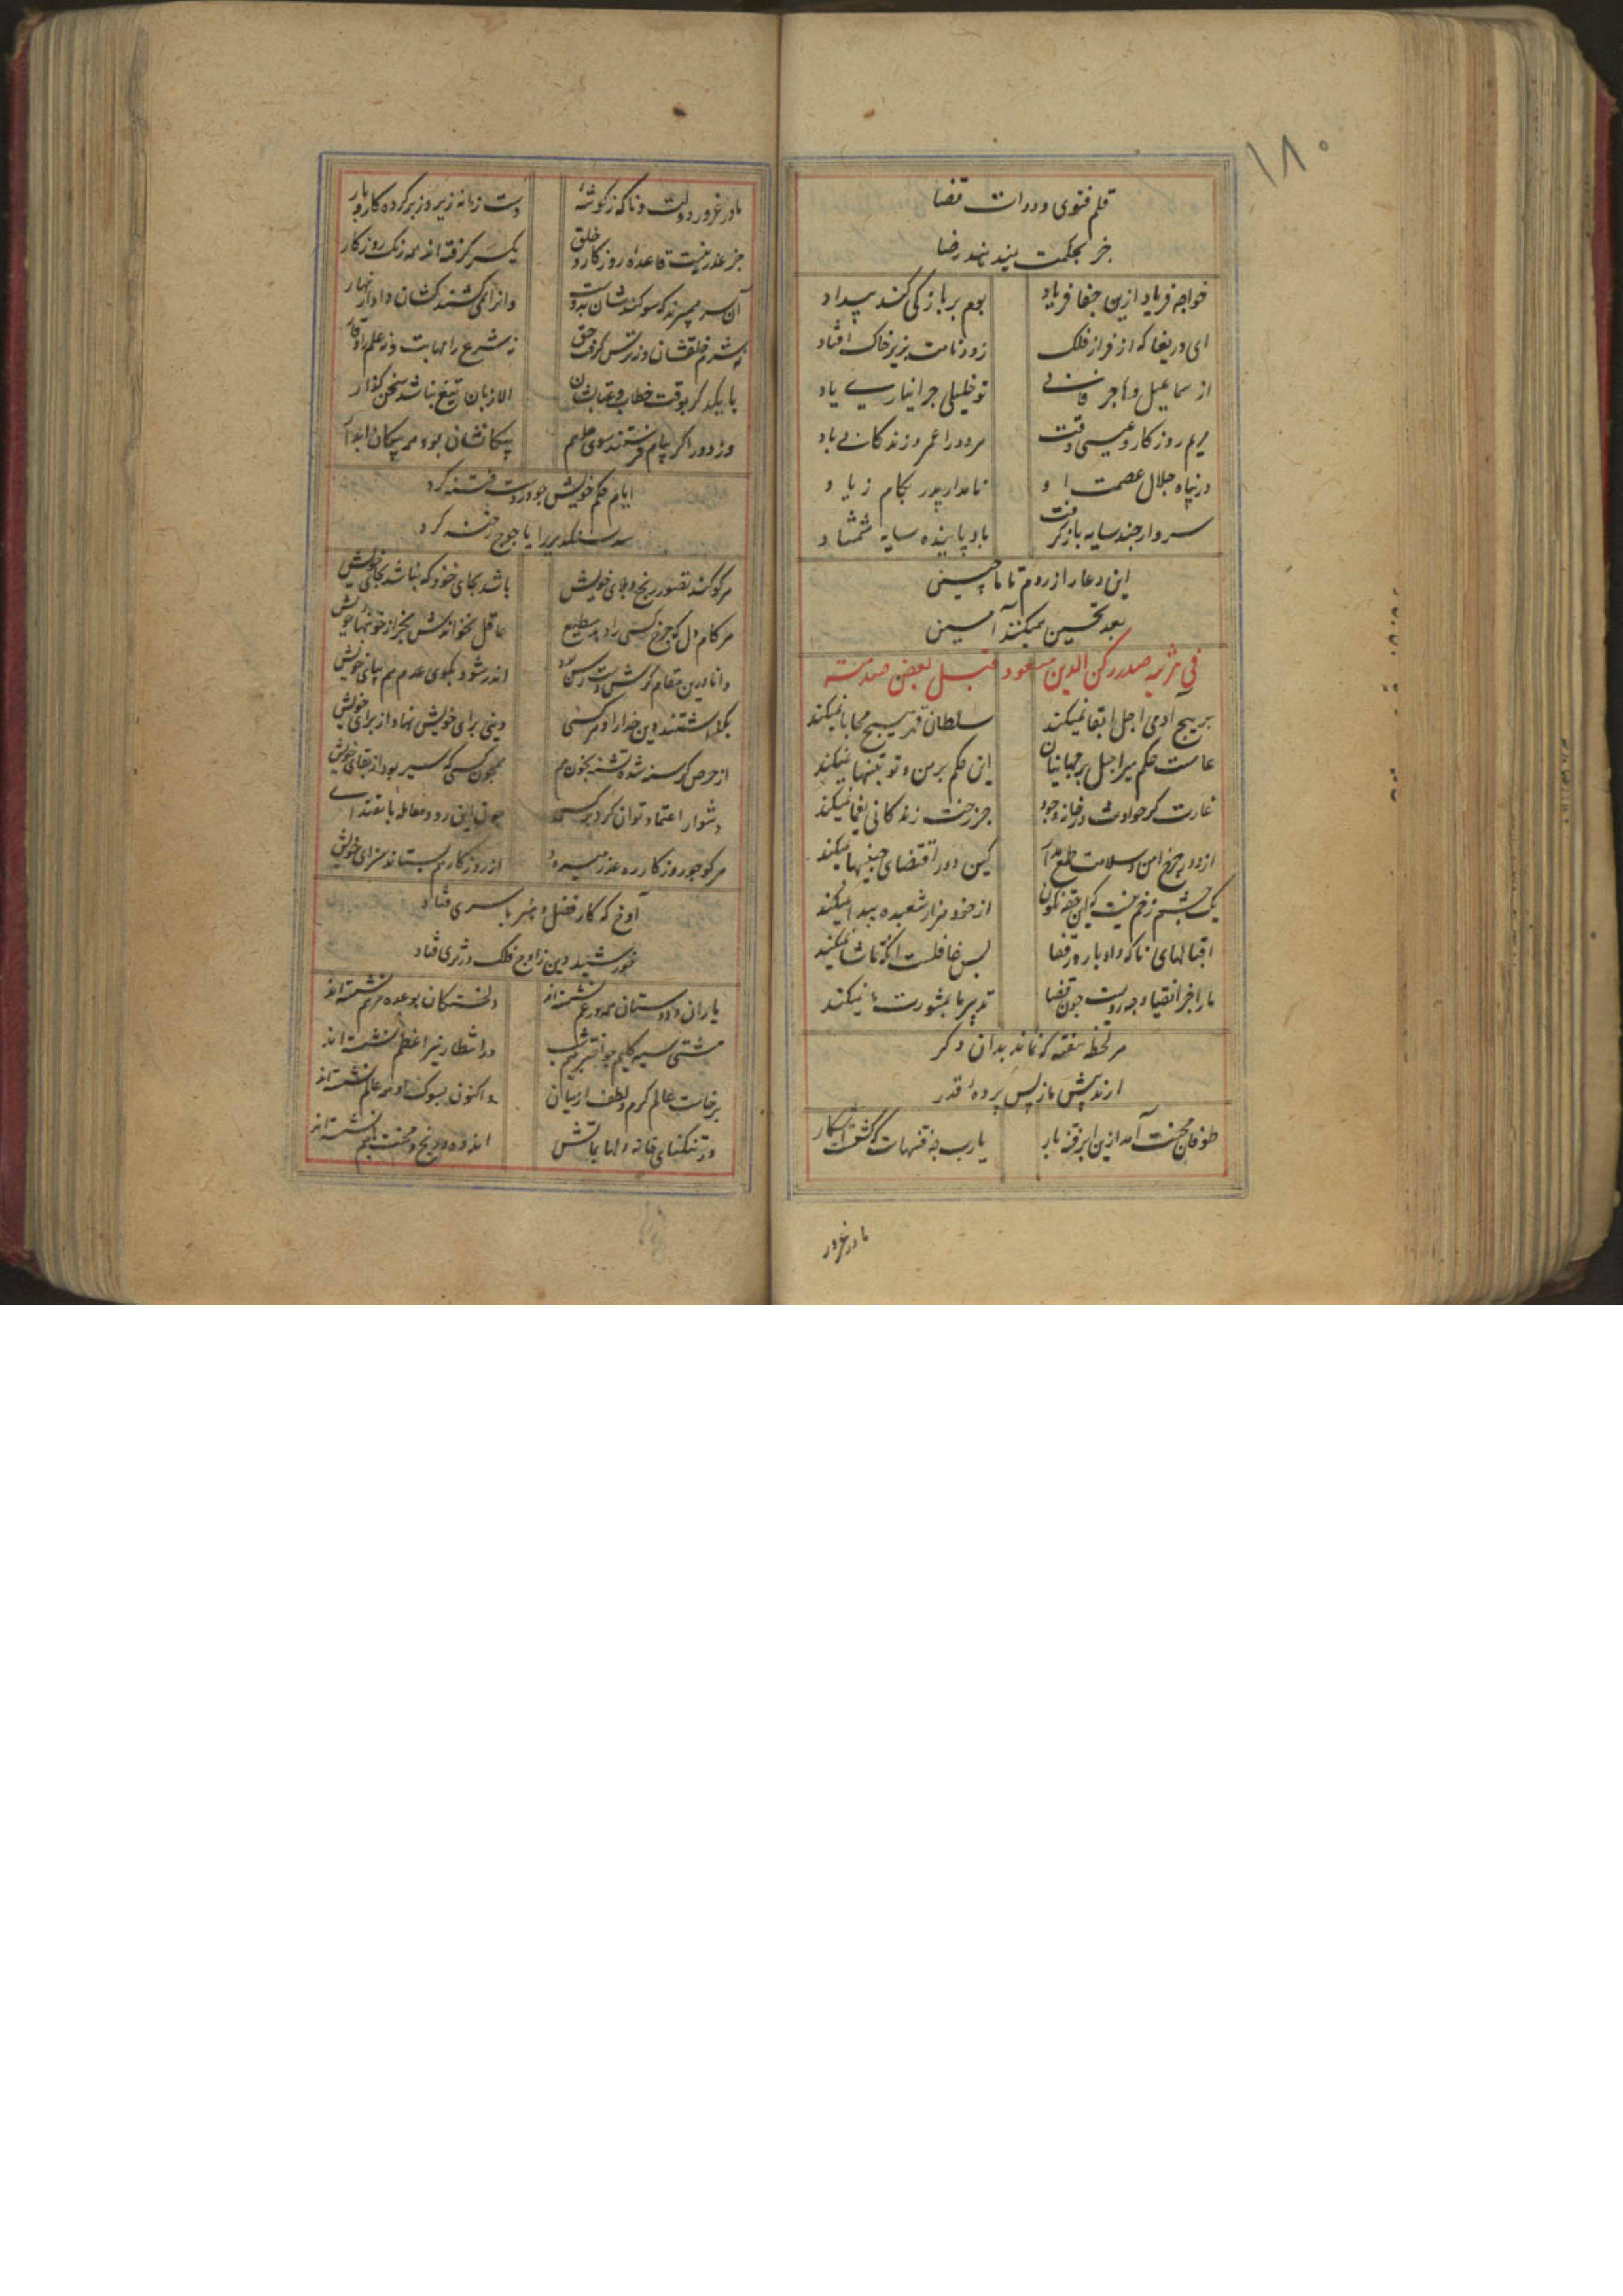 ۱۸۰
قلم فتوی و دوات قضا
جز بحکمت بیند نهد رضا
خواجه فریاد ازین جفا فریاد بوم بر باز کی کند بیداد
ای دریغا که از فراز فلک زود نامت بزیر خاک افتاد
از سماعیل و هاجر تو خلیلی چرا نیاری یاد
مریم روزکار و عیسی وقت مر دو را عمر و زندکانی باد
در پناه جلال عصمت او نامدار پدر بکام زیاد
سرو ار چند سایه باز کرفت باد پاینده سایه شمشاد
این دعا را از روم تا ما چین
بعد تحسین میکنند آمین
فی مرثیه صدر رکن الدین مسعود قتل بعض
بر هیچ آدمی اجل ابقا نمیکند سلطان قهر هیچ محابا نمیکند
عامست حکم میر اجل بر جهانیان این حکم بر من و تو بتنها نمیکند
غارت کر حوادث در خانه وجود جز رخت زندکانی یغما نمیکند
از دور چرخ امن و سلامت طمع مدار کین دور اقتضای چنینها میکند
یک چشم زخم نیست که این حقه نکون از خود هزار شعبده پیدا نمیکند
اقبالهای ناکه و ادبار در قضا بس غافلست انکه تماشا نمیکند
ما را جز انقیاد چه رویست چون قضا تدبیر ما بمشورت ما نمیکند
مر لحظه نقمه که نماند بدان دکر
ارند پیش ما ز پس پرده قدر
طوفان محنت آمد ازین ابر فتنه بار یا رب چه فتنهاست که کشت آشکار
ما در غرور
ما در غرور دولت و ناکه ز کوشه دست زمانه زیر و زبر کرده کار و بار
جز عذر نیست قاعده روزکار و خلق یکسر کرفته اند همه رنک روزکار
آن سر میبرند که سوکندشان بدوست وانرا همی کشند کشان داد زینهار
نه شرم خلقشان و نه ترس کرفت حق نه شرع را مهابت و نه علم را وقار
با یکدکر بوقت خطاب و عتابشان الا زبان تیغ نباشد سخن کذار
وز دور اکر پیام فرستند سوی هم پیکانشان بود همه پیکان آبدار
ایام حکم خویش چو در دست فتنه کرد
سد سکندری را یاجوج رخنه کرد
مرکو کند تصور رنج و بلای خویش باشد بجای خود که نباشد بجای خویش
مر کام دل که چرخ کسی را دهد بطبع عاقل نخواندش بجز از خونبهای خویش
دانا درین مقام کرش دست رس بود اندر شود بکوی عدم هم بپای خویش
بکذاشتند دین خدا را و مر کسی دینی برای خویش نهاد از برای خویش
از حرص کرسنه شده تشنه بخون هم همچون کسی که سیر بود از بقای خویش
دشوار اعتماد توان کرد بر کسی چون این رود معامله با مقتدای
مرکو جور روزکار ره عذر میسپرد از روزکار هم بستاند سزای خویش
آوخ که کار فضل و هنر با سری فتاد
خورشید دین ز اوج فلک در ثری فتاد
یاران و دوستان همه در غم نشسته اند دلخستکان بوعده مرهم نشسته اند
مشتی سیه کلیم چو اختر بنیم شب در انتظار نیر اعظم نشسته اند
برخاست عالم کرم و لطف از میان و اکنون بسوک او همه عالم نشسته اند
در تنکنای خانه دلها بماتمش اندوه و رنج و محنت با هم نشسته اند